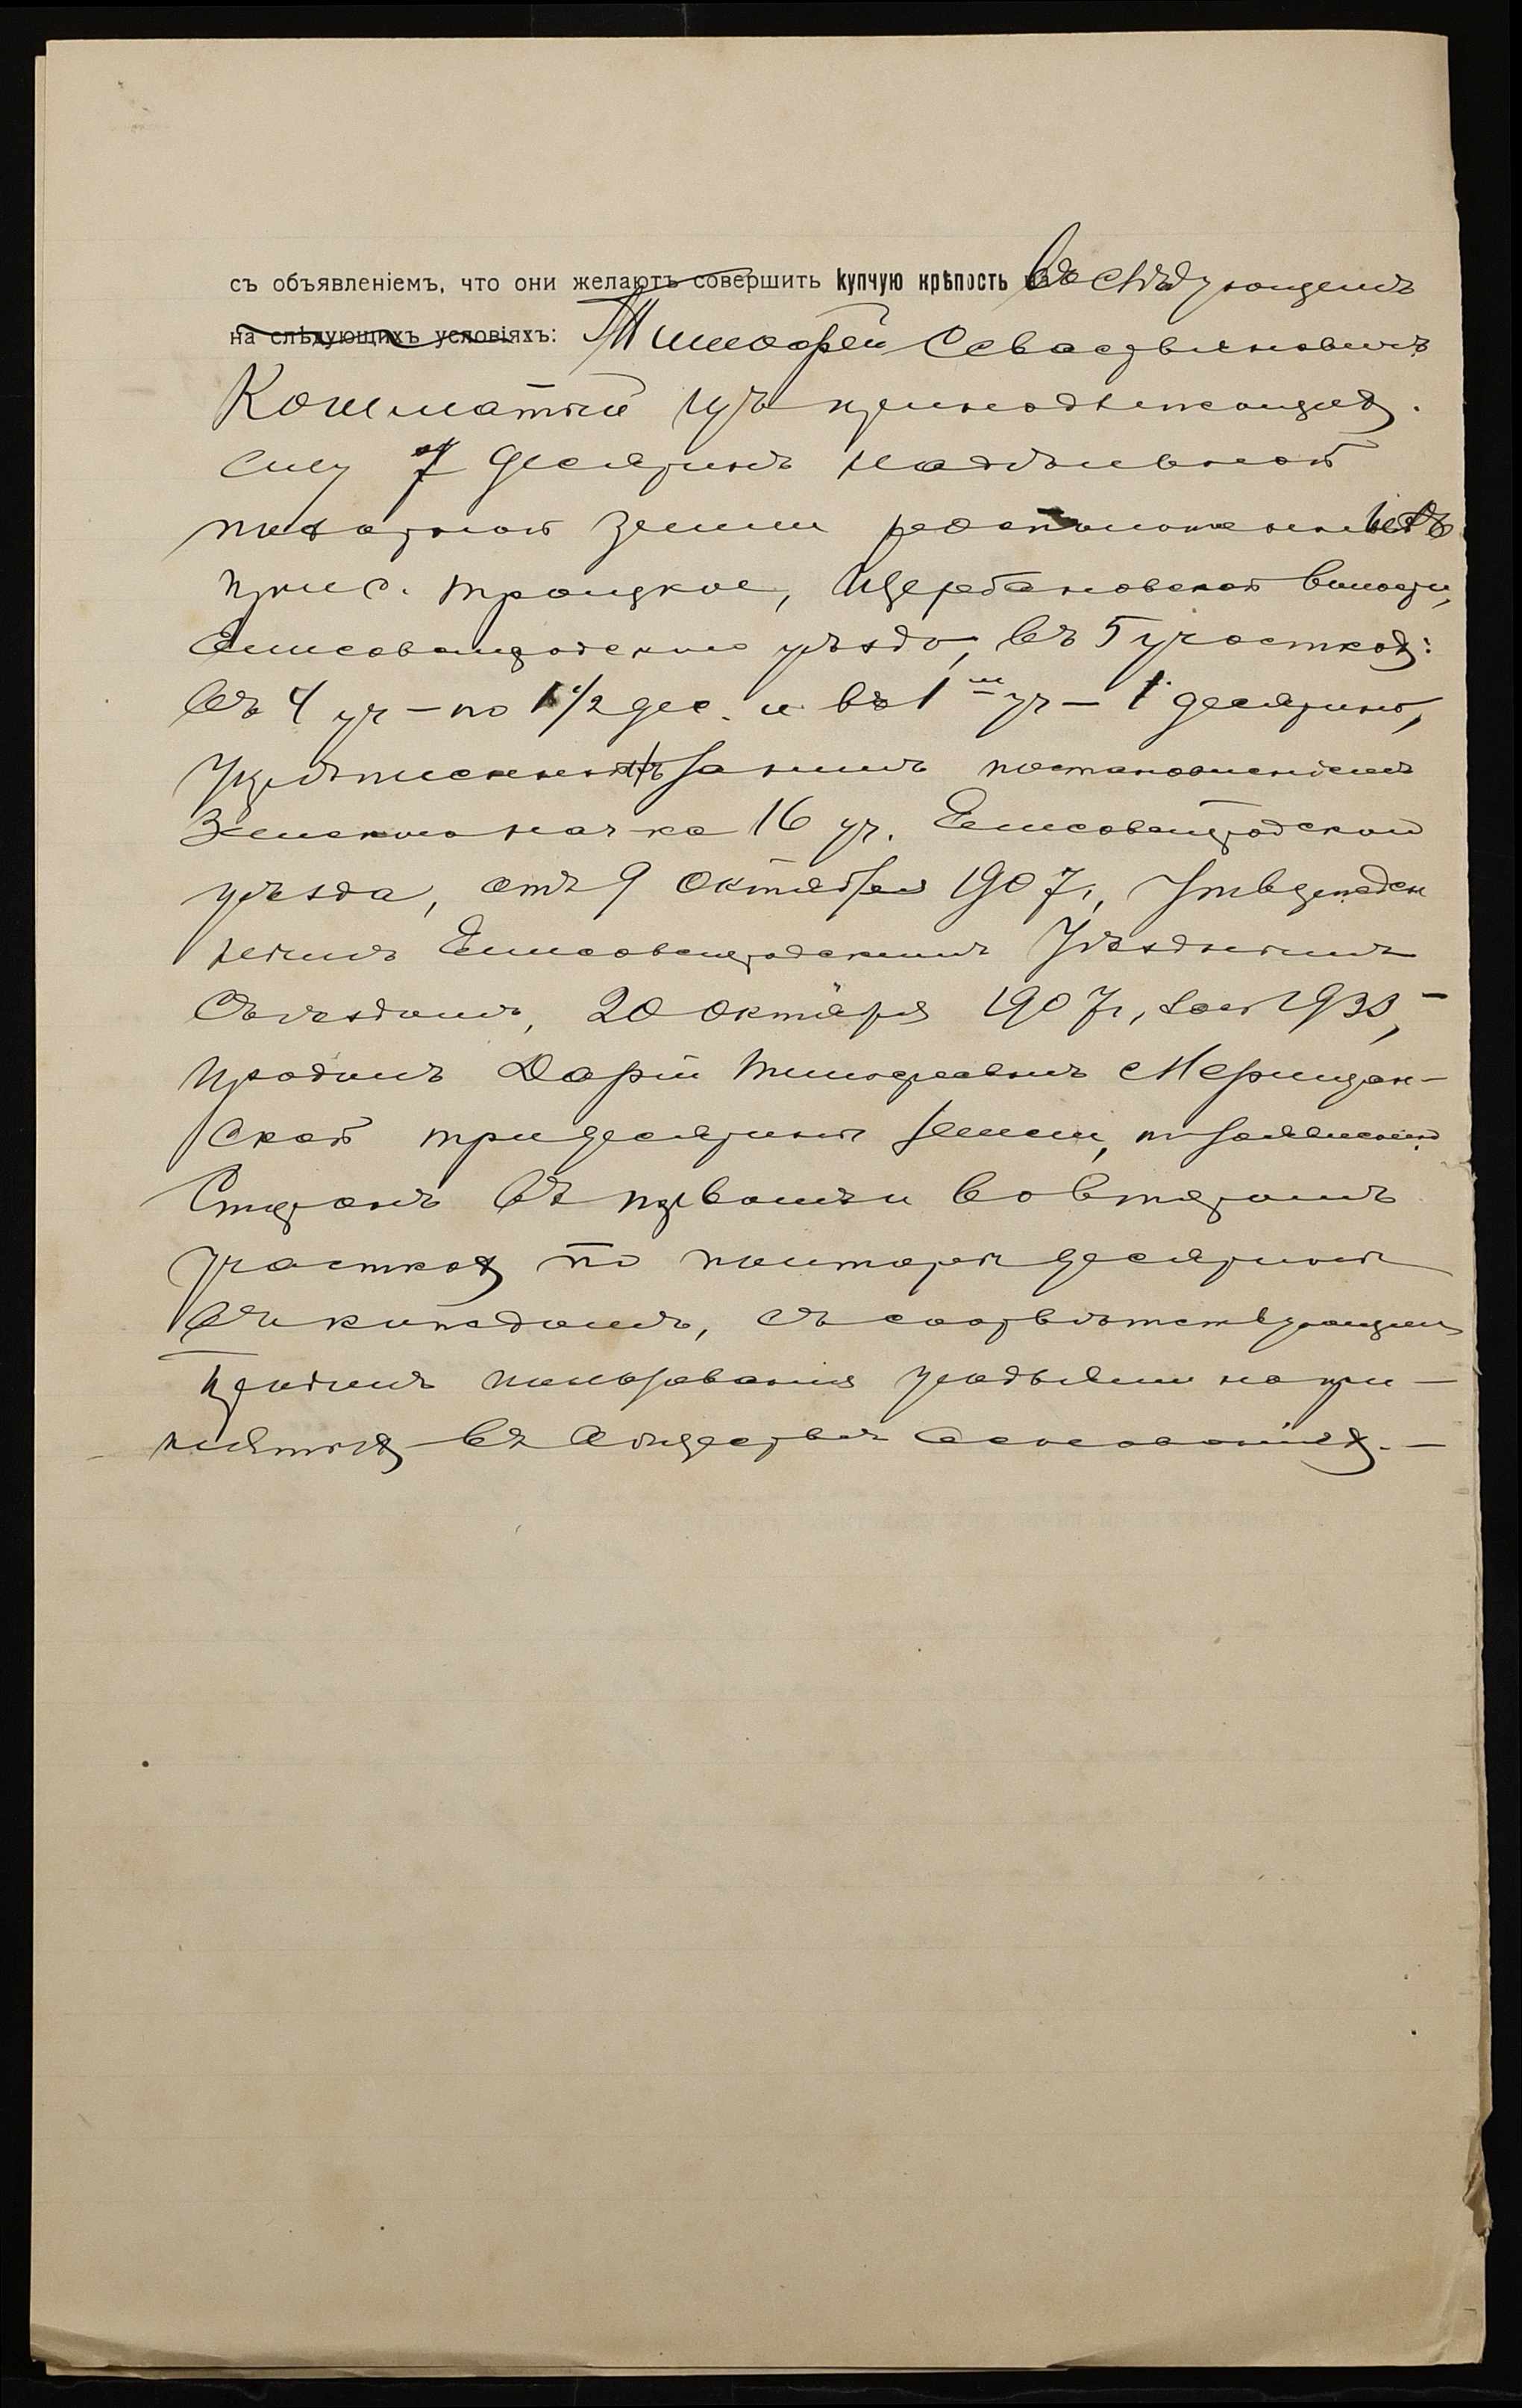 съ объявленіемъ, что они желаютъ совершить купчую крѣпость на въ слѣдующемъ
на слѣдующихъ условіяхъ: Тимофей Севастьяновичъ
Кошматый изъ принадлежащихъ
ему 7 десятинъ надѣльной
пахатной земли расположенныхъ
при с. Троицкое, Щербановской волости,
Елисаветградскаго уѣзда, въ 5 участкахъ:
въ 4 уч – по 1 1/2 дес. и въ 1 м уч – 1 десятина,
укрѣпленныхъ за нимъ постановленіемъ
Земскаго нач-ка 16 уч. Елисаветградскаго
уѣзда, отъ 9 октября 1907 г., утвержден
нымъ Елисаветградскимъ Уѣзднымъ
Съѣздомъ, 20 октября 1907 г.,
продалъ Даріи Тимофеевнѣ
ской три десятины земли, по заявленію
сторонъ въ первомъ и во второмъ
участкахъ по полторы десятины
въ каждомъ, съ соотвѣтствующимъ
правомъ пользованія усадьбами на при-
нятыхъ въ обществѣ основаніяхъ. —